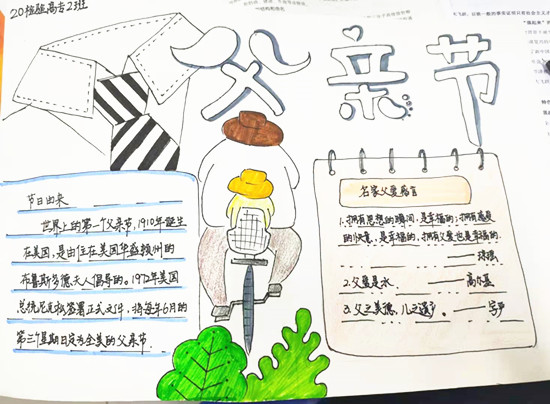 20检验高专23班
父亲节
节日由来
世界上的第一个父亲节,1910年诞生
在美国,是由住在美国华盛顿州的
布鲁斯多德夫人倡导的。1972年美国
总统尼克松签署正式文件,将每年6月的
第三个星期日定为全美的父亲节.
名家父爱名言
1.拥有思想的瞬间,是幸福的;拥有感受
的快意,是幸福的,拥有父爱也是幸福的.
2.父爱是水. ——高尔基
3.父之美德,儿之遗产.